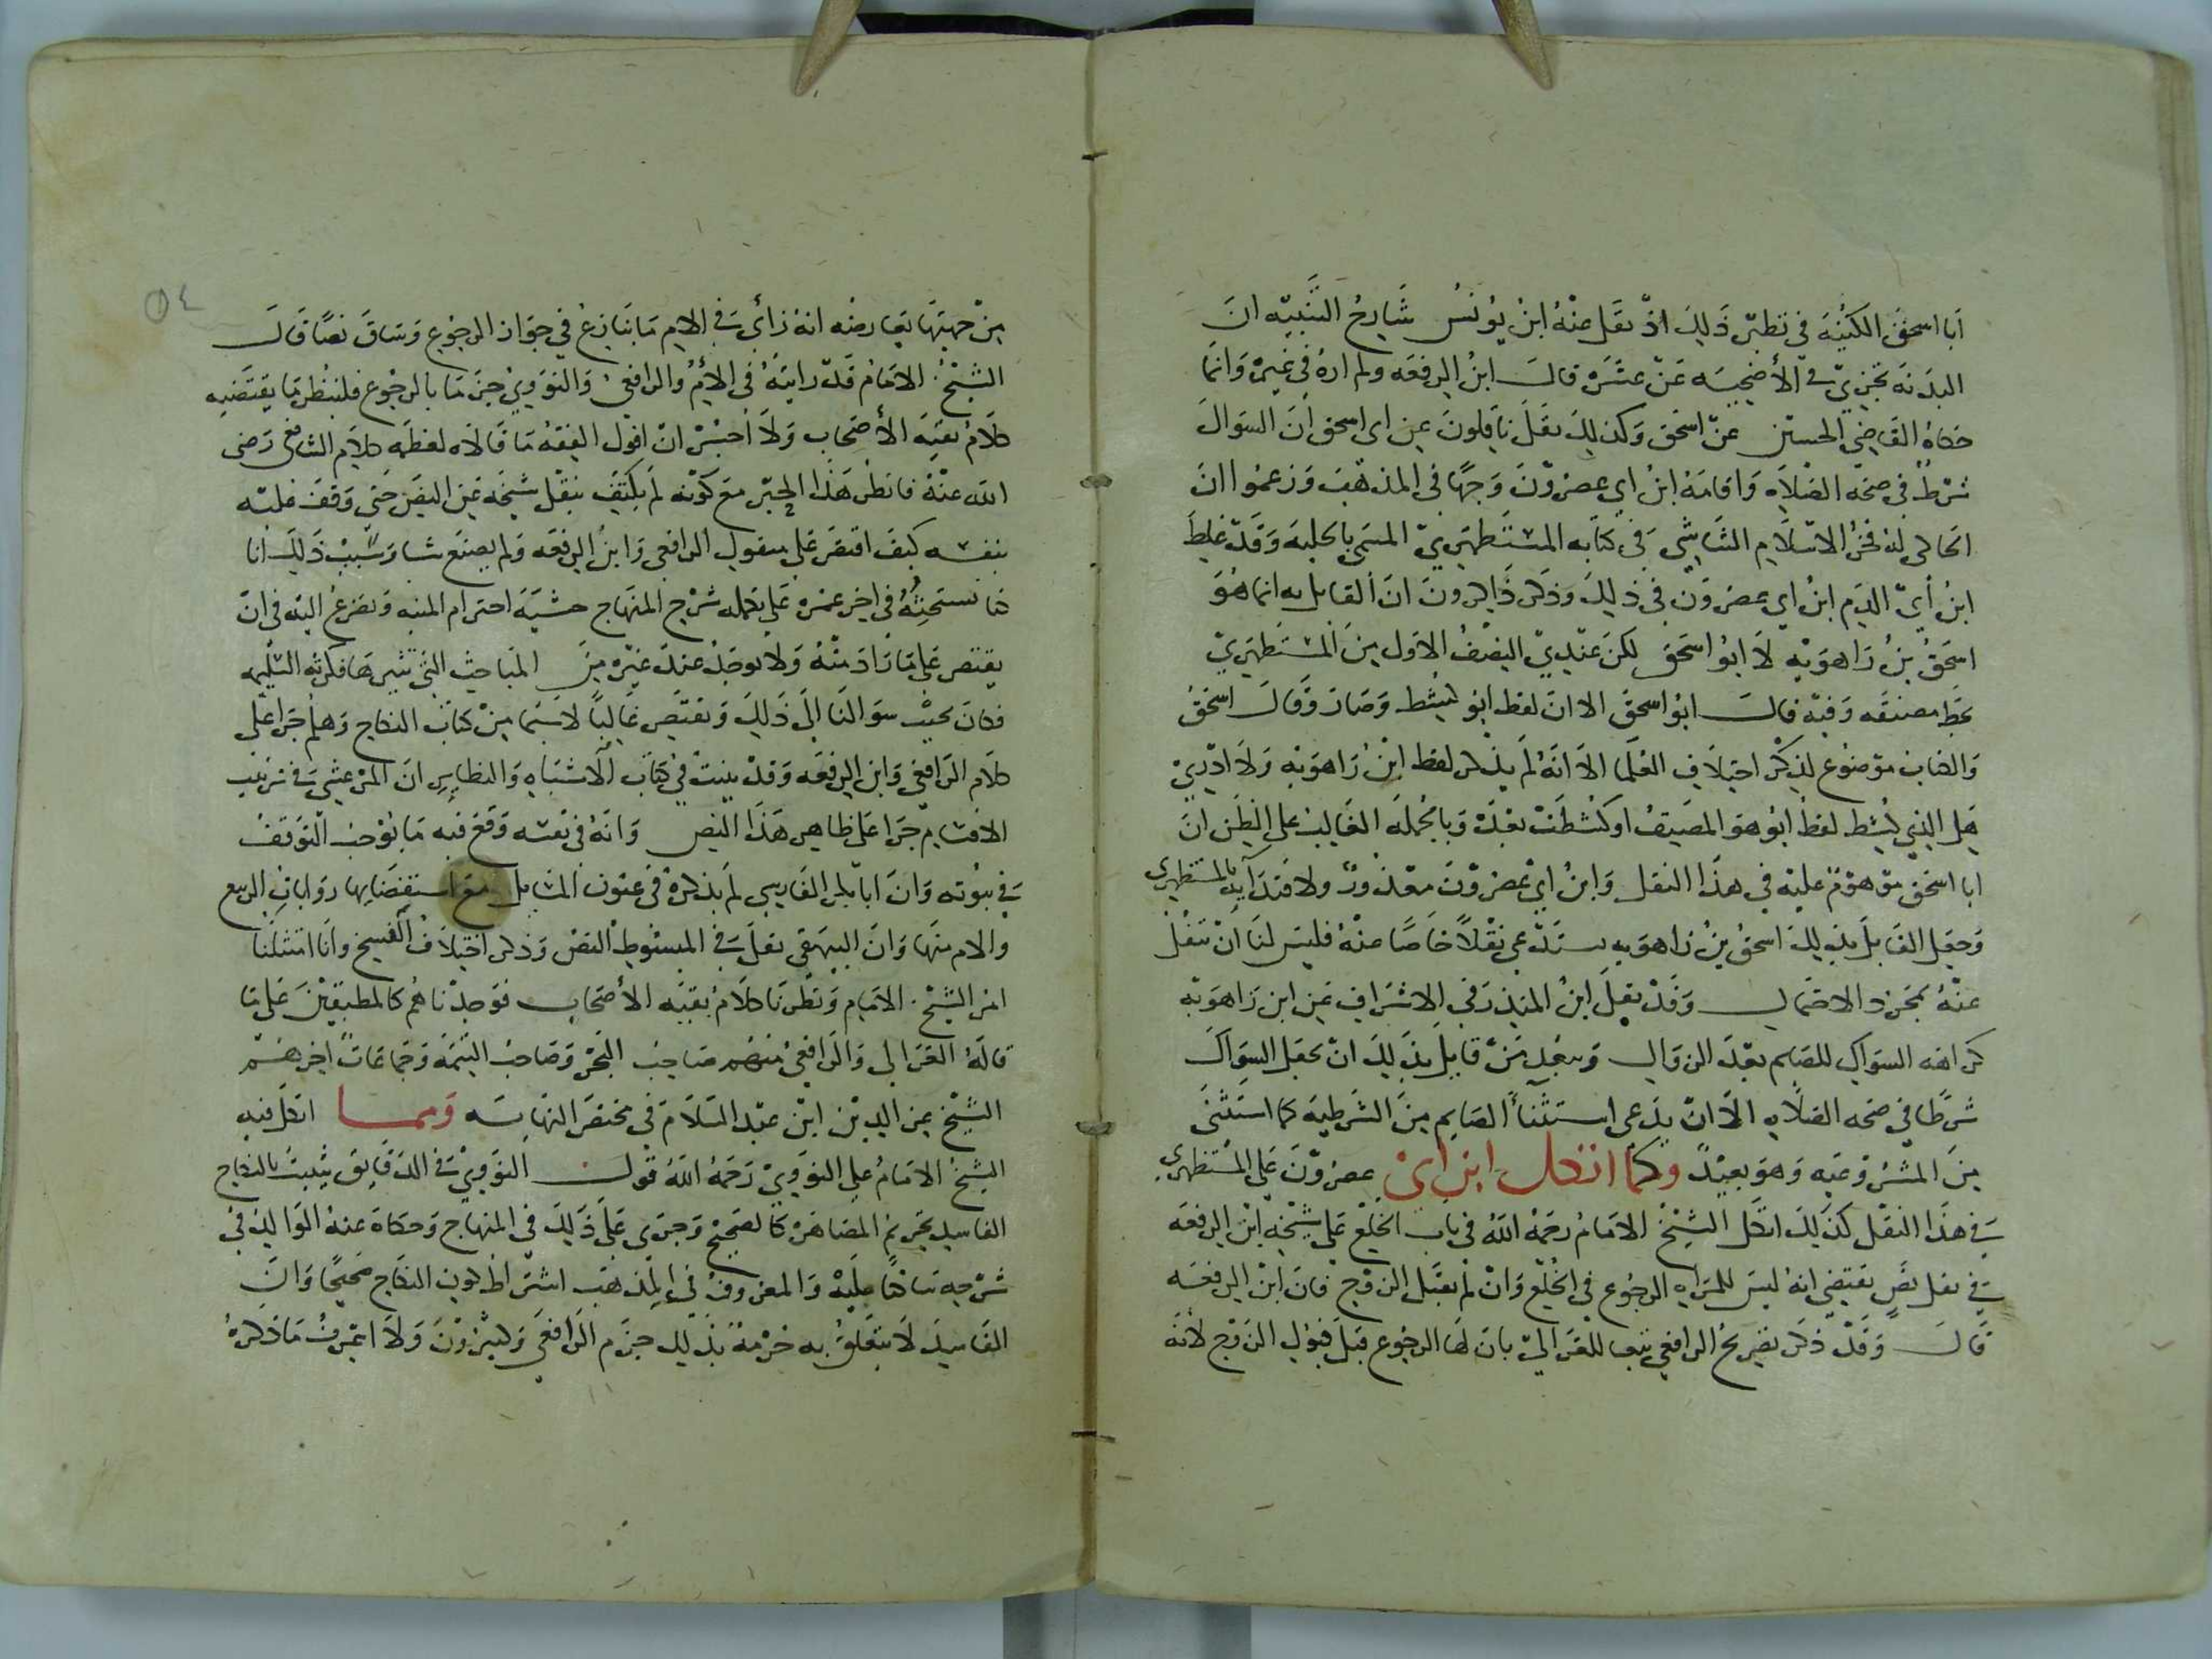 أبا اسحق الكنية في نظير ذلك اذ نقل عنه ابن يونس شارح التنبيه ان
البدنة تجزي في الأضحية عن عشرة قال ابن الرفعه ولم اره في غيره وانما
حكاه القاضي الحسين عن اسحق وكذلك نقل ناقلون عن ابي اسحق ان السواك
شرط في صحة الصلاة واقامه ابن ابي عصرون وجها في المذهب وزعموا ان
الحاكي له فخر الاسلام الشاشي في كتابه المستظهري المسمى بالحلية وقد غلط
ابن أبي الدم ابن ابي عصرون في ذلك وذكر ذاكرون ان القايل به انما هو
اسحق بن راهويه لا ابو اسحق لكن عندي النصف الاول من المستظهري
بخط مصنفه وفيه قال ابو اسحق الا ان لفظ ابو كشط وصار وقال اسحق
والكتاب موضوع لذكر اختلاف العلما الا انه لم يذكر لفظ ابن راهويه ولا ادري
هل الذي كشط لفظ ابو هو المصنف او كشطت بعده وبالجملة الغالب على الظن ان
ابا اسحق موهوم عليه في هذا النقل وابن ابي عصرون معذور ولا بالمستظهري
وجعل القايل بذلك اسحق بن راهويه يستدعي نقلا خاصا عنه فليس لنا ان ننقل
عنه بمجرد الاحتمال وقد نقل ابن المنذر في الاشراف عن ابن راهويه
كراهه السواك للصايم بعد الزوال ويبعد من قايل بذلك ان يجعل السواك
شرطا في صحه الصلاه الا ان يدعى استثنأ الصايم من الشرطية كما استثنى
من المشروعيه وهو بعيد وكما اتكل ابن ابي عصرون على المستظهري
في هذا النقل كذلك اتكل الشيخ الامام رحمه الله في باب الخلع على شيخه ابن الرفعه
في نقل نص يقتضي انه ليس للمراه الرجوع في الخلع وان لم يقبل الزوج فان ابن الرفعه
قال وقد ذكر تصريح الرافعي تبعا للغزالي بان لها الرجوع قبل قبول الزوج لانه
من جهتها يعارضه انه رأى في الام ما ينازع في جواز الرجوع وساق نصا قال
الشيخ الامام قد رايته في الأم والرافعي والنووي جزما بالرجوع فلينظر ما يقتضيه
كلام بقيه الأصحاب ولا اجسر ان اقول الفقه ما قالاه لعظمه كلام الشافعي رضي
الله عنه فانظر هذا الحبر مع كونه لم يكتف بنقل شيخه عن النص حتى وقف عليه
بنفسه كيف اقتصر على منقول الرافعي وابن الرفعه ولم يصنع شيا وسبب ذلك انا
كنا نستحثه في اخر عمره على تكمله شرح المنهاج خشية احترام المنيه ونضرع اليه في ان
يقتصر على ما زاد منه ولا يوجد عند غيره من المباحث التي تثيرها فكرته السليمه
فكان يجيب سوالنا الى ذلك ويقتصر غالبا لا سيما من كتاب النكاح وهلم جرا على
كلام الرافعي وابن الرفعه وقد بينت في كتاب الاشباه والنظاير ان المرعشي في ترتيب
الاقسام جرا على ظاهر هذا النص وانه في نفسه وقع فيه ما يوجب التوقف
في ثبوته وان ابا بكر الفارسي لم يذكره في عيون المسايل مع استقصايها روايات الربيع
والام منها وان البيهقي نقل في المبسوط النص وذكر اختلاف النسخ وانا امتثلنا
امر الشيخ الامام ونظرنا كلام بقيه الأصحاب فوجدناهم كالمطبقين على ما
قاله الغزالي والرافعي منهم صاحب البحر وصاحب التتمه وجماعات اخرهم
الشيخ عز الدين ابن عبد السلام في مختصر النهايه ومما اتكل فيه
الشيخ الامام على النووي رحمه الله قول النووي في الدقايق يثبت بالنكاح
الفاسد تحريم المصاهرة كالصحيح وجرى على ذلك في المنهاج وحكاه عنه الوالد في
شرحه ساكتا عليه والمعروف في المذهب اشتراط كون النكاح صحيحا وان
الفاسد لا يتعلق به حرمة بذلك جزم الرافعي وكثيرون ولا اعرف ما ذكره